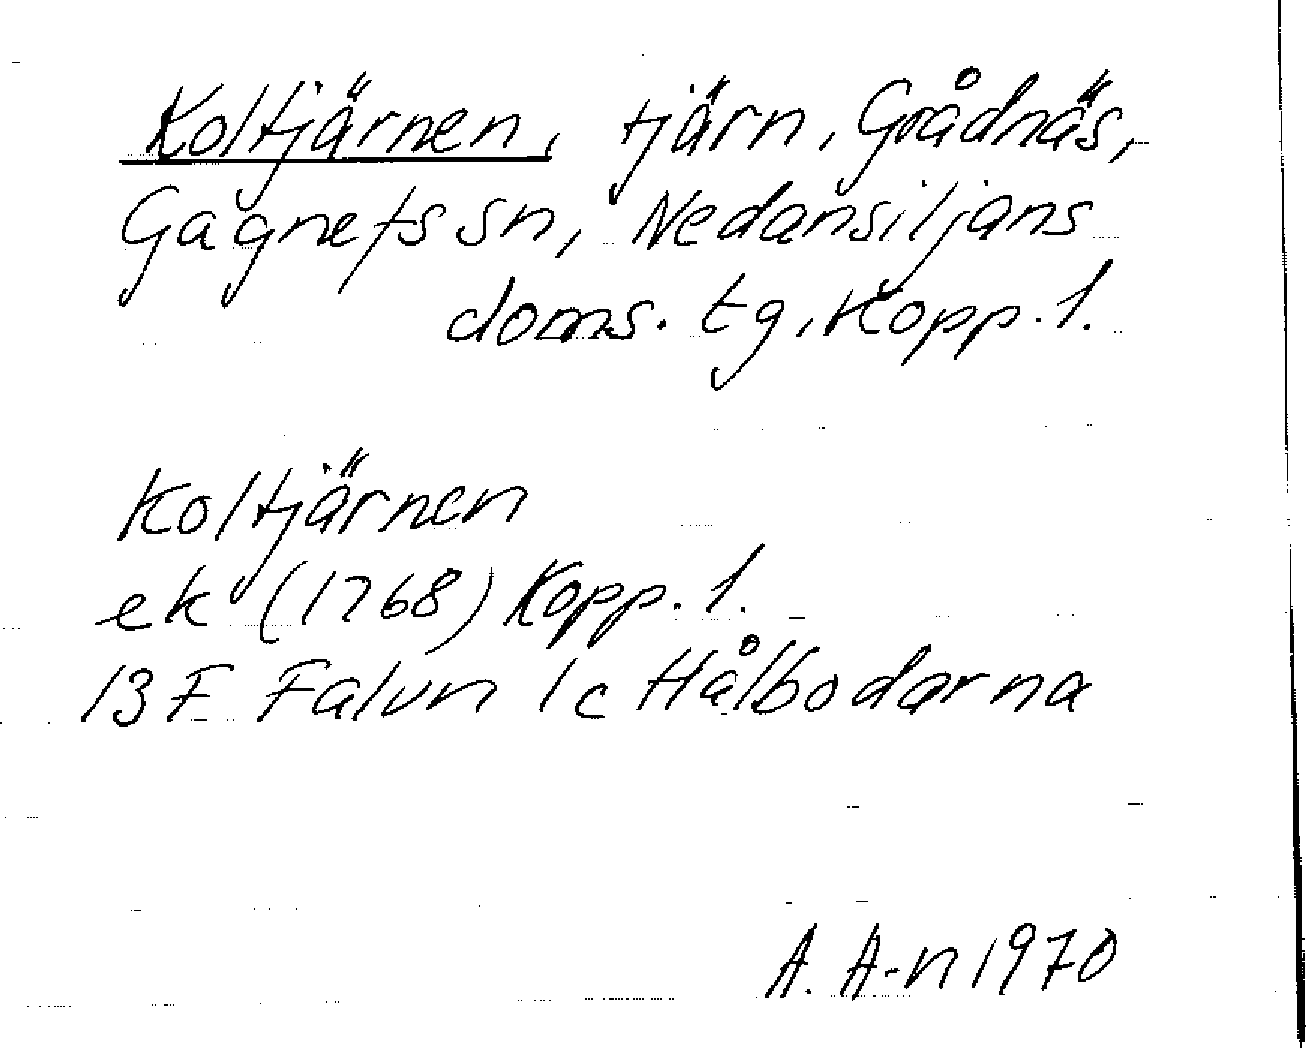 Koltjärnen, tjärn, Grådnäs,
Gagnefs sn, Nedansiljans
doms. tg, Kopp. l.
Koltjärnen
ek (1768) Kopp. l.
13F Falun 1c Hålbodarna
A. A-n 1970